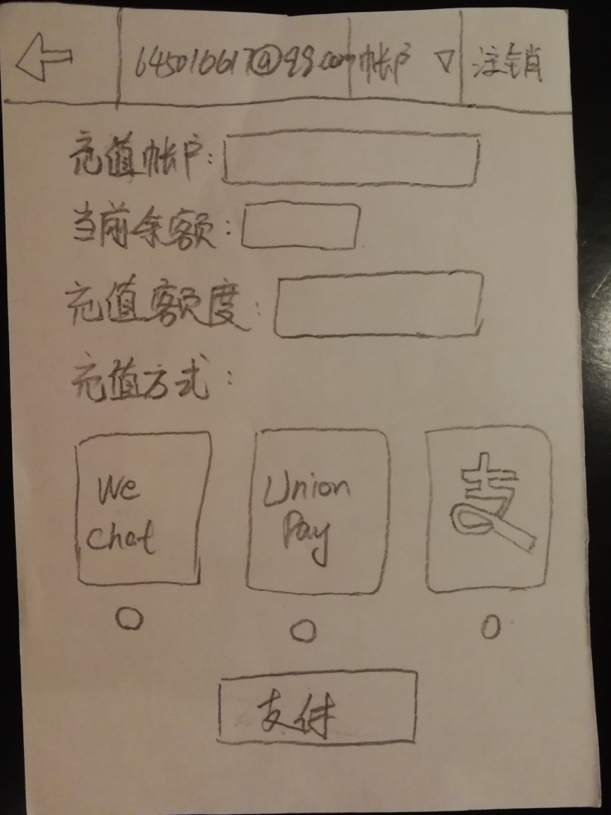 645016617@qq.com 帐户 ▽ 注销
充值帐户:
当前余额:
充值额度:
充值方式:
We Chat
Union Pay
支
支付